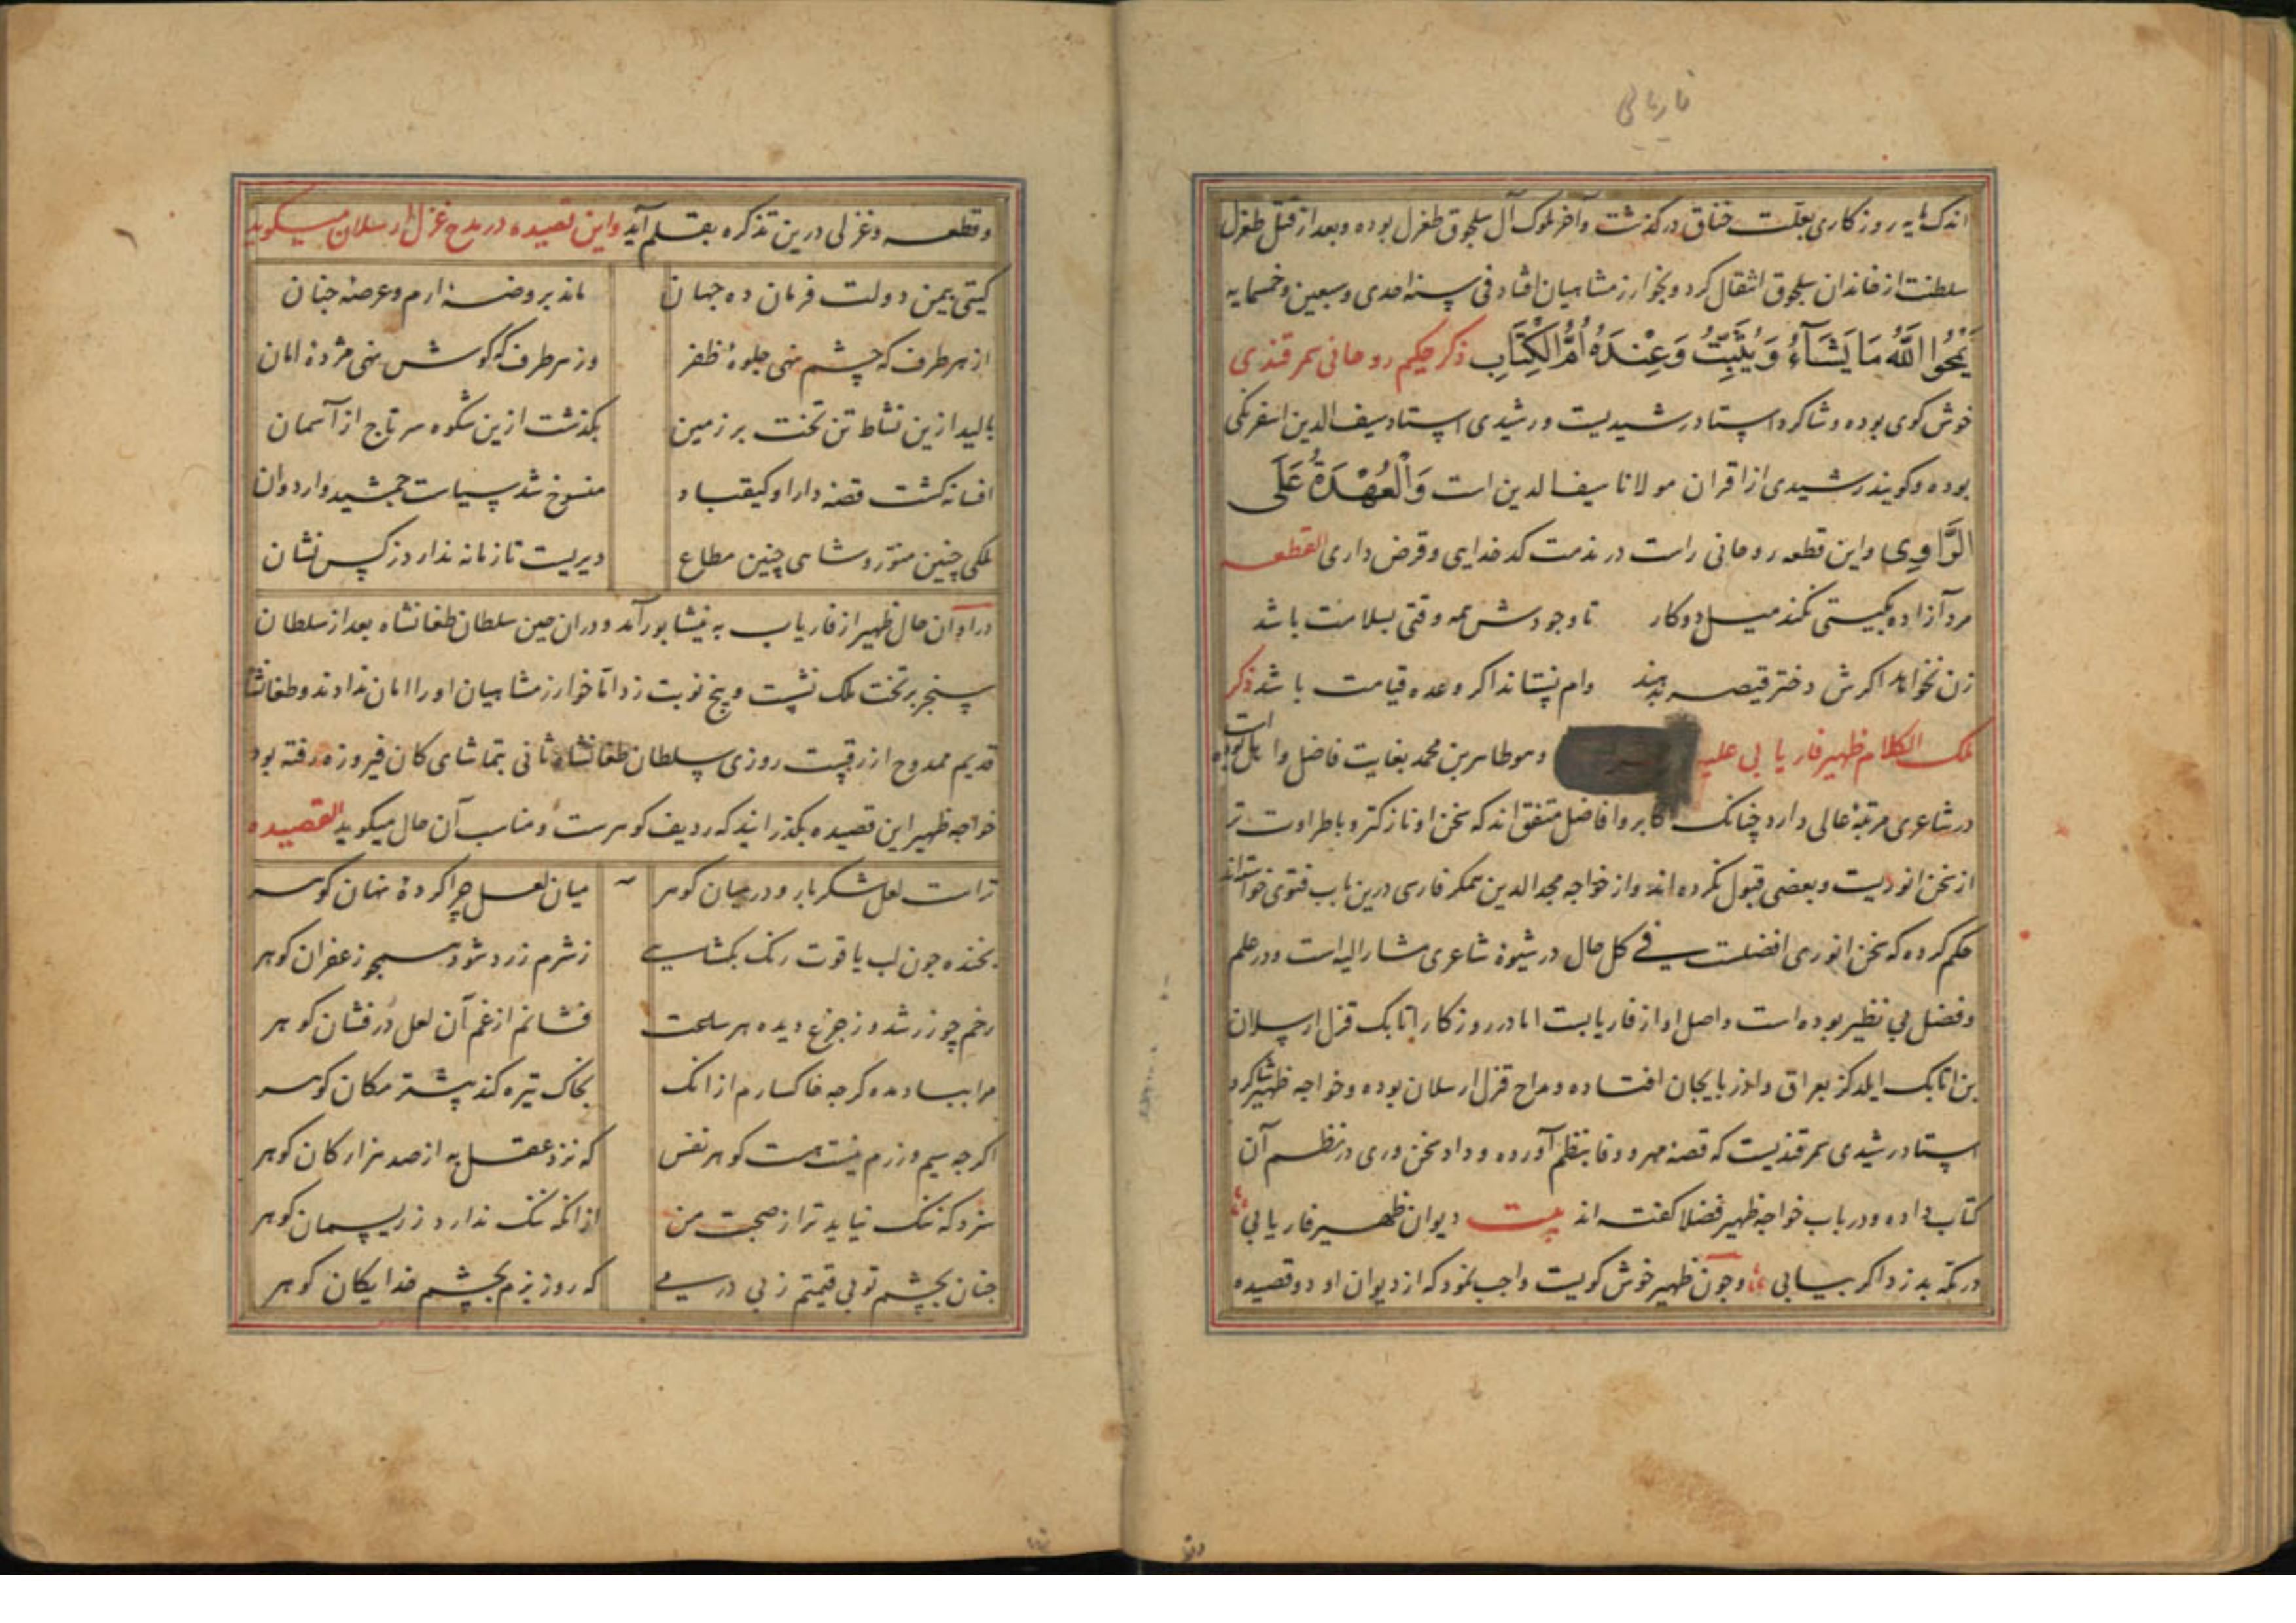 فاریابی
اندک مایه روزکاری بعلت خناق درکذشت وآخر ملوک آل سلجوق طغرل بوده وبعد از قتل طغرل
سلطنت از خاندان سلجوق انتقال کرد وبخوارزمشاهیان افتاد فی سنه احدی وسبعین وخمسمایه
یَمْحُوا اللَّهُ مَا یَشَآءُ وَیُثْبِتُ وَعِنْدَهُ اُمُّ الْکِتَابِ ذکر حکیم روحانی سمرقندی
خوش کوی بوده وشاکرد استاد رشیدیست ورشیدی استاد سیف الدین اسفرنکی
بوده وکویند رشیدی از اقران مولانا سیف الدین است وَالْعُهْدَةُ عَلَی
الرَّاوِی واین قطعه روحانی راست در مذمت کدخدایی وقرض داری القطعه
مرد آزاده بکیتی نکند میل دوکار تا وجودش همه وقتی بسلامت باشد
زن نخواهد اکرش دختر قیصر بدهند وام نستاند اکر وعده قیامت باشد ذکر
ملک الکلام ظهیر فاریابی علیه وهو طاهر بن محمد بغایت فاضل واهل بوده است
در شاعری مرتبه عالی دارد چنانک اکابر وافاضل متفق اند که سخن او نازکتر وباطراوت تر
از سخن انوریست وبعضی قبول نکرده اند واز خواجه مجد الدین همکر فارسی درین باب فتوی خواسته‌اند
حکم کرده که سخن انوری افضلست فی کل حال در شیوهٔ شاعری مشار الیه است ودر علم
وفضل بی نظیر بوده است واصل او از فاریابست اما در روزکار اتابک قزل ارسلان
بن اتابک ایلدکز بعراق واذربایجان افتاده ومداح قزل ارسلان بوده وخواجه ظهیر شاکرد
استاد رشیدی سمرقندیست که قصه مهر ووفا بنظم آورده وداد سخن وری در نظم آن
کتاب داده ودر باب خواجه ظهیر فضلا کفته اند بیت دیوان ظهیر فاریابی
در مکه بدزد اکر بیابی وچون ظهیر خوش کویست واجب نمود که از دیوان او دو قصیده
وقطعه وغزلی درین تذکره بقلم آید واین قصیده در مدح غزل ارسلان میکوید
کیتی بیمن دولت فرمان ده جهان ماند بروضه ارم وعرصه جنان
از هر طرف که چشم نهی جلوهٔ ظفر وز هر طرف که کوش نهی مژدهٔ امان
بالید ازین نشاط تن تخت بر زمین بکذشت ازین شکوه سر تاج از آسمان
افسانه کشت قصه دارا وکیقباد منسوخ شد سیاست جمشید واردوان
ملکی چنین منور وشاهی چنین مطاع دیریست تا زمانه ندارد ز کس نشان
در اوان حال ظهیر از فاریاب به نیشابور آمد ودران حین سلطان طغانشاه بعد از سلطان
سنجر بر تخت ملک نشست وپنج نوبت زد اتا خوارزمشاهیان او را امان ندادند وطغانشاه
قدیم ممدوح ازرقیست روزی سلطان طغانشاه ثانی بتماشای کان فیروزه رفته بود
خواجه ظهیر این قصیده بکذرانید که ردیف کوهرست ومناسب آن حال میکوید القصیده
تراست لعل شکر بار ودر میان کوهر میان لعل چرا کردهٔ نهان کوهر
بخنده چون لب یاقوت رنک بکشایی ز شرم زرد شود همچو زعفران کوهر
رخم چو زر شد وز جزع دیده هر ساعت فشانم از غم آن لعل درفشان کوهر
مرا بباد مده کرچه خاکسارم از انک بخاک تیره کند بیشتر مکان کوهر
اکر چه سیم وزرم نیست هست کوهر نفس که نزد عقل به از صد هزار کان کوهر
سزد که ننک نیاید ترا ز صحبت من از انکه ننک ندارد ز ریسمان کوهر
چنان بچشم تو بی قیمتم ز بی درمی که روز بزم بچشم خدایکان کوهر